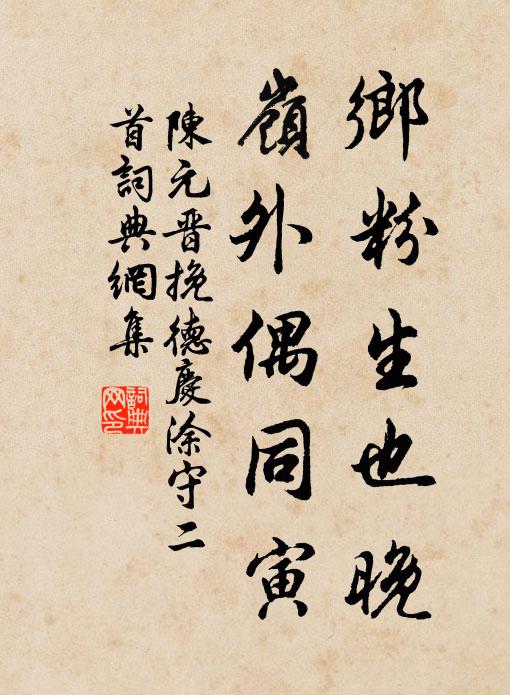 鄉粉生也晚
嶺外偶同寅
陳元晋挽德慶涂守二
首詞典網集
詞典
网印